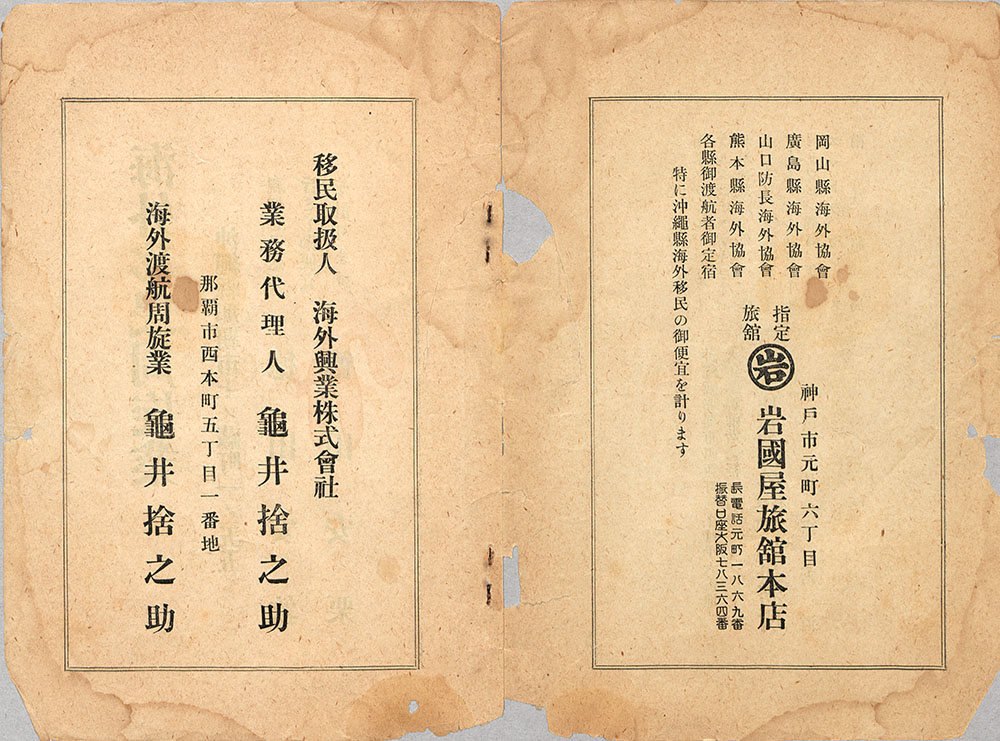 岡山縣海外協會
廣島縣海外協會
山口防長海外協會
熊本縣海外協會
各縣御渡航者御定宿
特に沖繩縣海外移民の御便宜を計ります
指定
旅舘
神戸市元町六丁目
岩
岩國屋旅舘本店
長電話元町一八六九番
振替口座大阪七八三六四番
移民取扱人 海外興業株式會社
業務代理人 龜井捨之助
那覇市西本町五丁目一番地
海外渡航周旋業 龜井捨之助